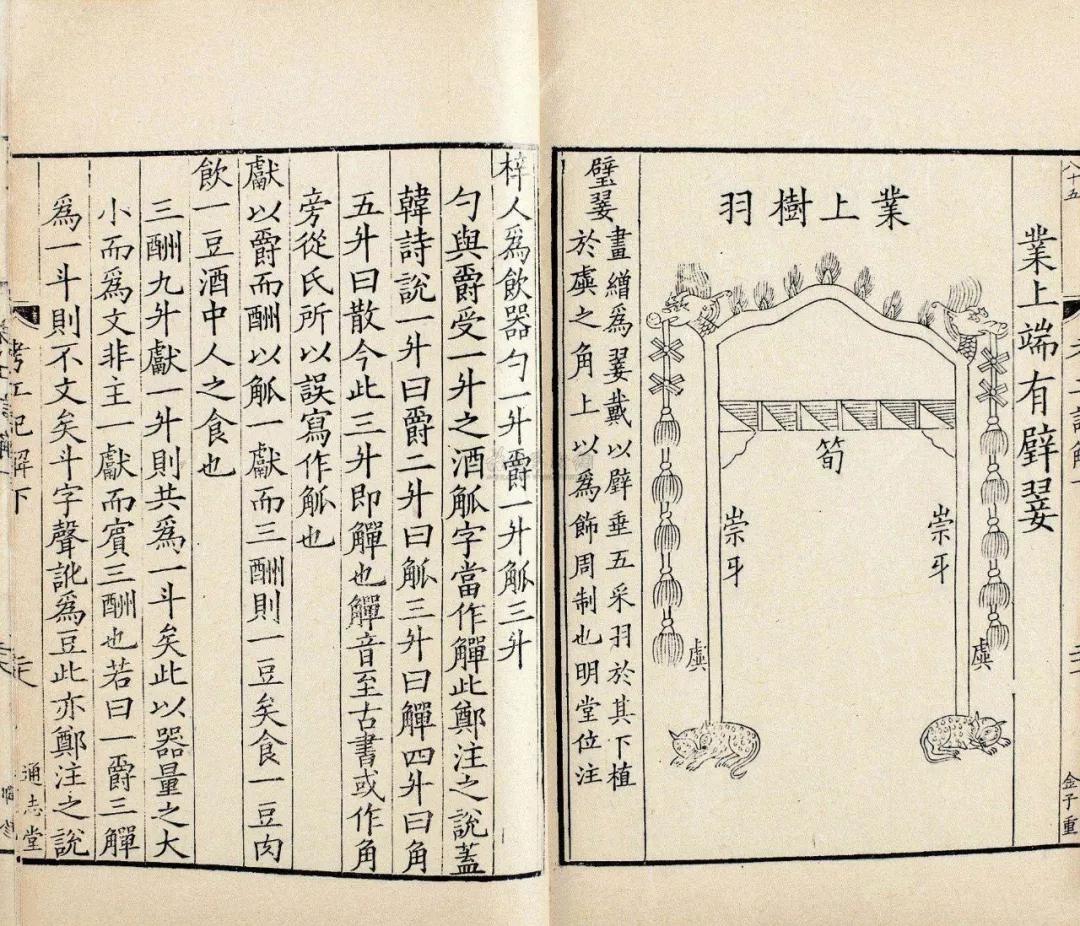 業上端有璧翣
業上樹羽
筍
崇牙
崇牙
虡
虡
璧翣
畫繒為翣戴以璧垂五采羽於其下植
於虡之角上以為飾周制也明堂位注
八十五
金子重
梓人爲飲器勺一升爵一升觚三升
勺與爵受一升之酒觚字當作觶此鄭注之說蓋
韓詩說一升曰爵二升曰觚三升曰觶四升曰角
五升曰散今此三升即觶也觶音至古書或作角
旁從氏所以誤寫作觚也
獻以爵而酬以觚一獻而三酬則一豆矣食一豆肉
飲一豆酒中人之食也
三酬九升獻一升則共爲一斗矣此以器量之大
小而爲文非主一獻而賓三酬也若曰一爵三觶
爲一斗則不文矣斗字聲訛爲豆此亦鄭注之說
考工記解下
通志堂